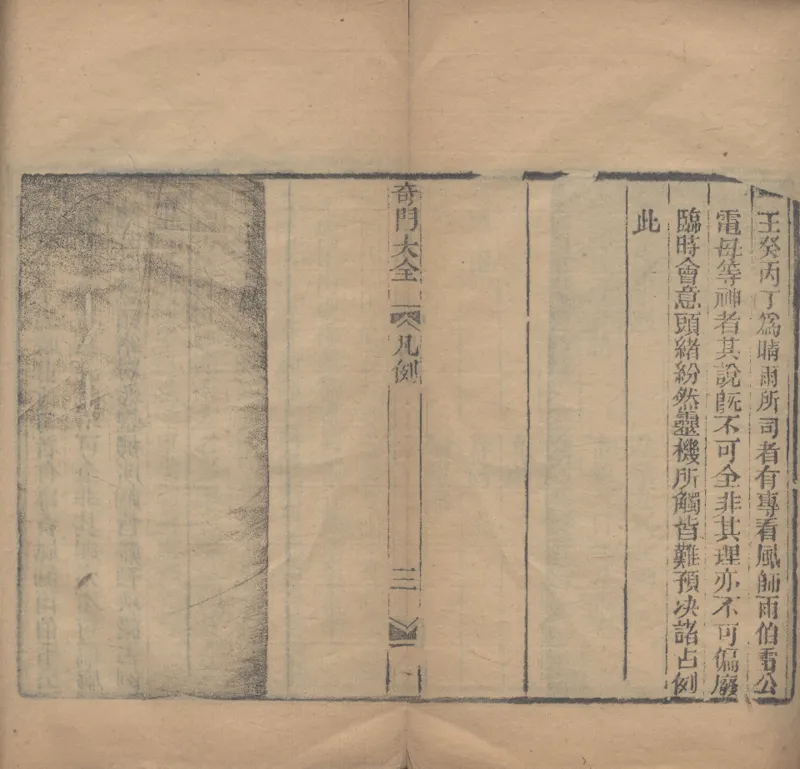 壬癸丙丁為晴雨所司者有專看風師雨伯雷公
電母等神者其說旣不可全非其理亦不可偏廢
臨時會意頭緒紛然靈機所觸皆難預决諸占例
此
奇門大全
凡例
三